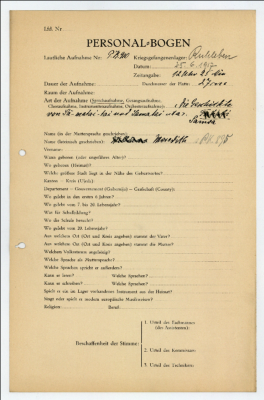 Lfd. Nr.
PERSONAL-BOGEN
Lautliche Aufnahme Nr.: Kriegsgefangenenlager: Ruhleben
Datum: 25. 6. 1917
Zeitangabe: 12 Uhr 25 Min
Dauer der Aufnahme: Durchmesser der Platte: 27 cm
Raum der Aufnahme:
Art der Aufnahme (Sprechaufnahme, Gesangsaufnahme,
Choraufnahme, Instrumentenaufnahme, Orchesteraufnahme): Die Geschichte
von
Samoa
Name (in der Muttersprache geschrieben):
Name (lateinisch geschrieben): Meredith
Vorname:
Wann geboren (oder ungefähres Alter)?
Wo geboren (Heimat)?
Welche größere Stadt liegt in der Nähe des Geburtsortes?
Kanton – Kreis (Ujedz)
Departement – Gouvernement (Gubernija) – Grafschaft (County)
Wo gelebt in den ersten 6 Jahren?
Wo gelebt vom 7. bis 20. Lebensjahr?
Was für Schulbildung?
Wo die Schule besucht?
Wo gelebt vom 20. Lebensjahr?
Aus welchem Ort (Ort und Kreis angeben) stammt der Vater?
Aus welchem Ort (Ort und Kreis angeben) stammt die Mutter?
Welchem Volksstamm angehörig?
Welche Sprache als Muttersprache?
Welche Sprachen spricht er außerdem?
Kann er lesen? Welche Sprachen?
Kann er schreiben? Welche Sprachen?
Spielt er ein im Lager vorhandenes Instrument aus der Heimat?
Singt oder spielt er modern europäische Musikweisen?
Religion: Beruf:
1. Urteil des Fachmannes
(des Assistenten):
Beschaffenheit der Stimme:
2. Urteil des Kommissars:
3. Urteil des Technikers: